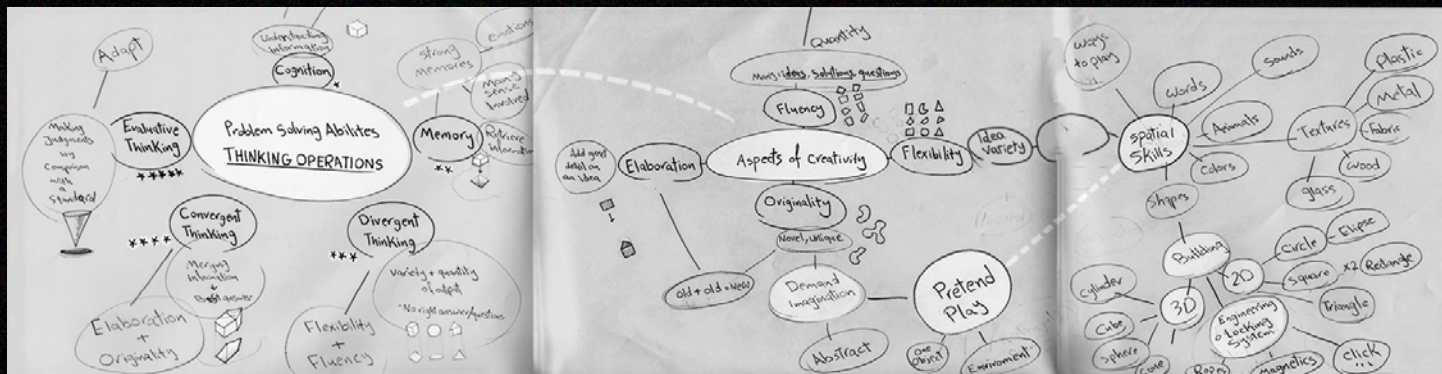 Adapt
Understanding
Information
Cognition
*
strong
memories
emotions
many
sense
involved
Retrieve
Information
Memory
**
Evaluative
Thinking
*****
Making
Judgments
by
Comparison
with
a
standard
Problem Solving Abilites
THINKING OPERATIONS
Convergent
Thinking
****
Merging
Information
Best answer
Elaboration
+
Originality
Divergent
Thinking
***
Variety + quantity
of output
No right answer/questions
Flexibility
+
Fluency
Quantity
Many ideas, solutions, questions
Fluency
Aspects of Creativity
Elaboration
Add great
detail on
an idea
Flexibility
Idea
Variety
Originality
Novel, unique
Old + old = New
Demand
Imagination
Abstract
Pretend
Play
One
Object
Enviroment
ways
to play
Spatial
Skills
Words
Sounds
Animals
Colors
Textures
Plastic
Metal
Fabric
Wood
glass
Shapes
Building
2D
Circle
Elipse
Square
x2
Rectangle
Triangle
3D
Cylinder
Cube
Sphere
Cone
Engineering
Locking
System
Ropes
Magnetics
Click
...